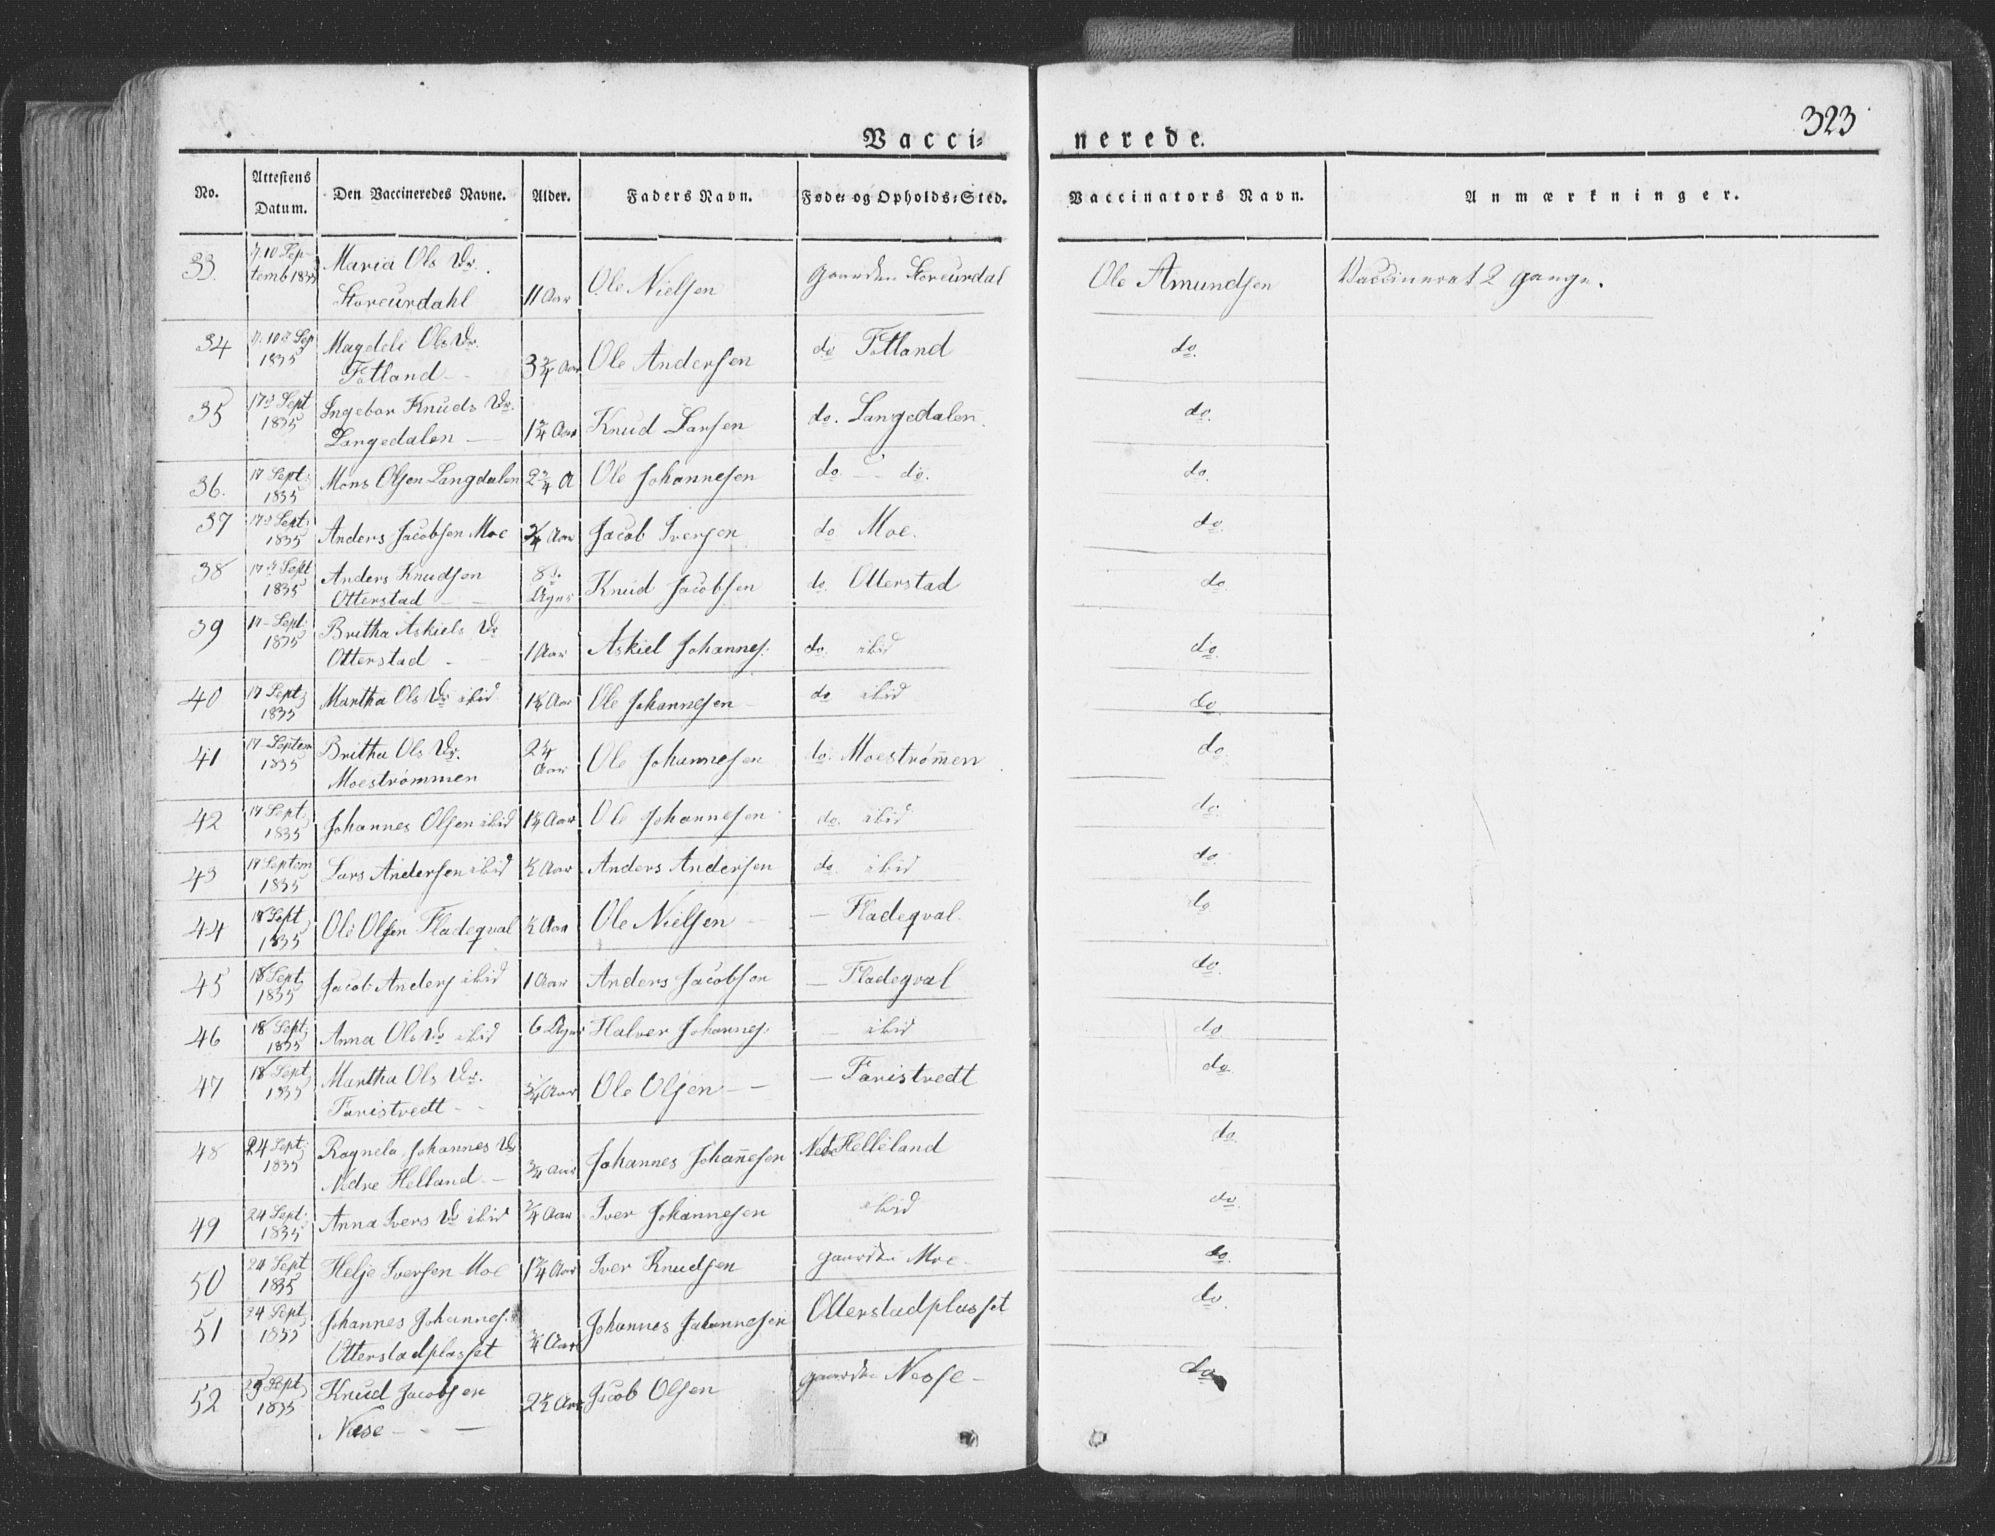 323
Vacci= nerede.
No. Attestens Datum. Den Vaccineredes Navne. Alder. Faders Navn. Føde= og Opholds=Sted. Vaccinators Navn. Anmærkninger.
33. 10 Sep-
temb 1835 Maria Ols Dr.
Storeurdahl 11 Aar Ole Nielsen Gaarden Storeurdal Ole Amundsen Vaccineret 2 gange.
34 Sep
1835 Magdeli Ols Dr.
Fotland 3 3/4 Aar Ole Andersen do Fotland do.
35 17 Sept
1835 Ingebor Knuds Dr.
Langedalen 1 3/4 Aar Knud Larsen do. Langedalen. do.
36. 17 Sept.
1835 Mons Olsen Langdalen 2 3/4 A Ole Johannesen do - do. do.
37 17 Sept.
1835 Anders Jacobsen Moe 3/4 Aar Jacob Iversen do Moe. do.
38 17 Sept
1835 Anders Knudsen
Otterstad 8
Uger Knud Jacobsen do Otterstad do
39 17 Sept.
1835 Britha Askiels Dr
Otterstad 1 Aar Askiel Johannes: do. ibid do.
40 17 Sept.
1835 Martha Ols Dr ibid Aar Ole Johannesen do ibid do
41 17 Septem
1835 Britha Ols Dr.
Moestrømmen 2 1/4
Aar Ole Johannesen do. Moestrømen do
42 17 Sept.
1835 Johannes Olsen ibid Aar Ole Johannesen do. ibid do.
43 17 Septem
1835 Lars Andersen ibid 1/2 Aar Anders Andersen do. ibid do.
44 18 Sept
1835 Ole Olsen Fladeqval 1/2 Aar Ole Nielsen - Fladeqval. do
45 18 Sept.
1835 Jacob Anders ibid 1 Aar Anders Jacobsen - Fladeqval do.
46 18 Sept.
1835 Anna Ols Dr ibid 6 Uger Halver Johannes: - ibid do.
47 18 Sept.
1835 Martha Ols Dr.
Faristvedt 3/4 Aar Ole Olsen - Faristvedt do.
48 24 Sept.
1835 Ragnela Johannes Dr
Nedre Helland 3/4 Aar Johannes Johañesen Nedr Helleland do.
49 24 Sept.
1835 Anna Ivers Dr ibid 3/4 Aar Iver Johannesen ibid do.
50 24 Sept
1835 Helje Iversen Moe 1 3/4 Aar Iver Knudsen gaarden Moe do.
51 24 Sept.
1835 Johannes Johannes:
Otterstadplasset 3/4 Aar Johannes Johannesen Otterstadplasset do.
52 25 Sept.
1835 Knud Jacobsen
Nese 2 1/2 Aar Jacob Olsen gaarden Neose do